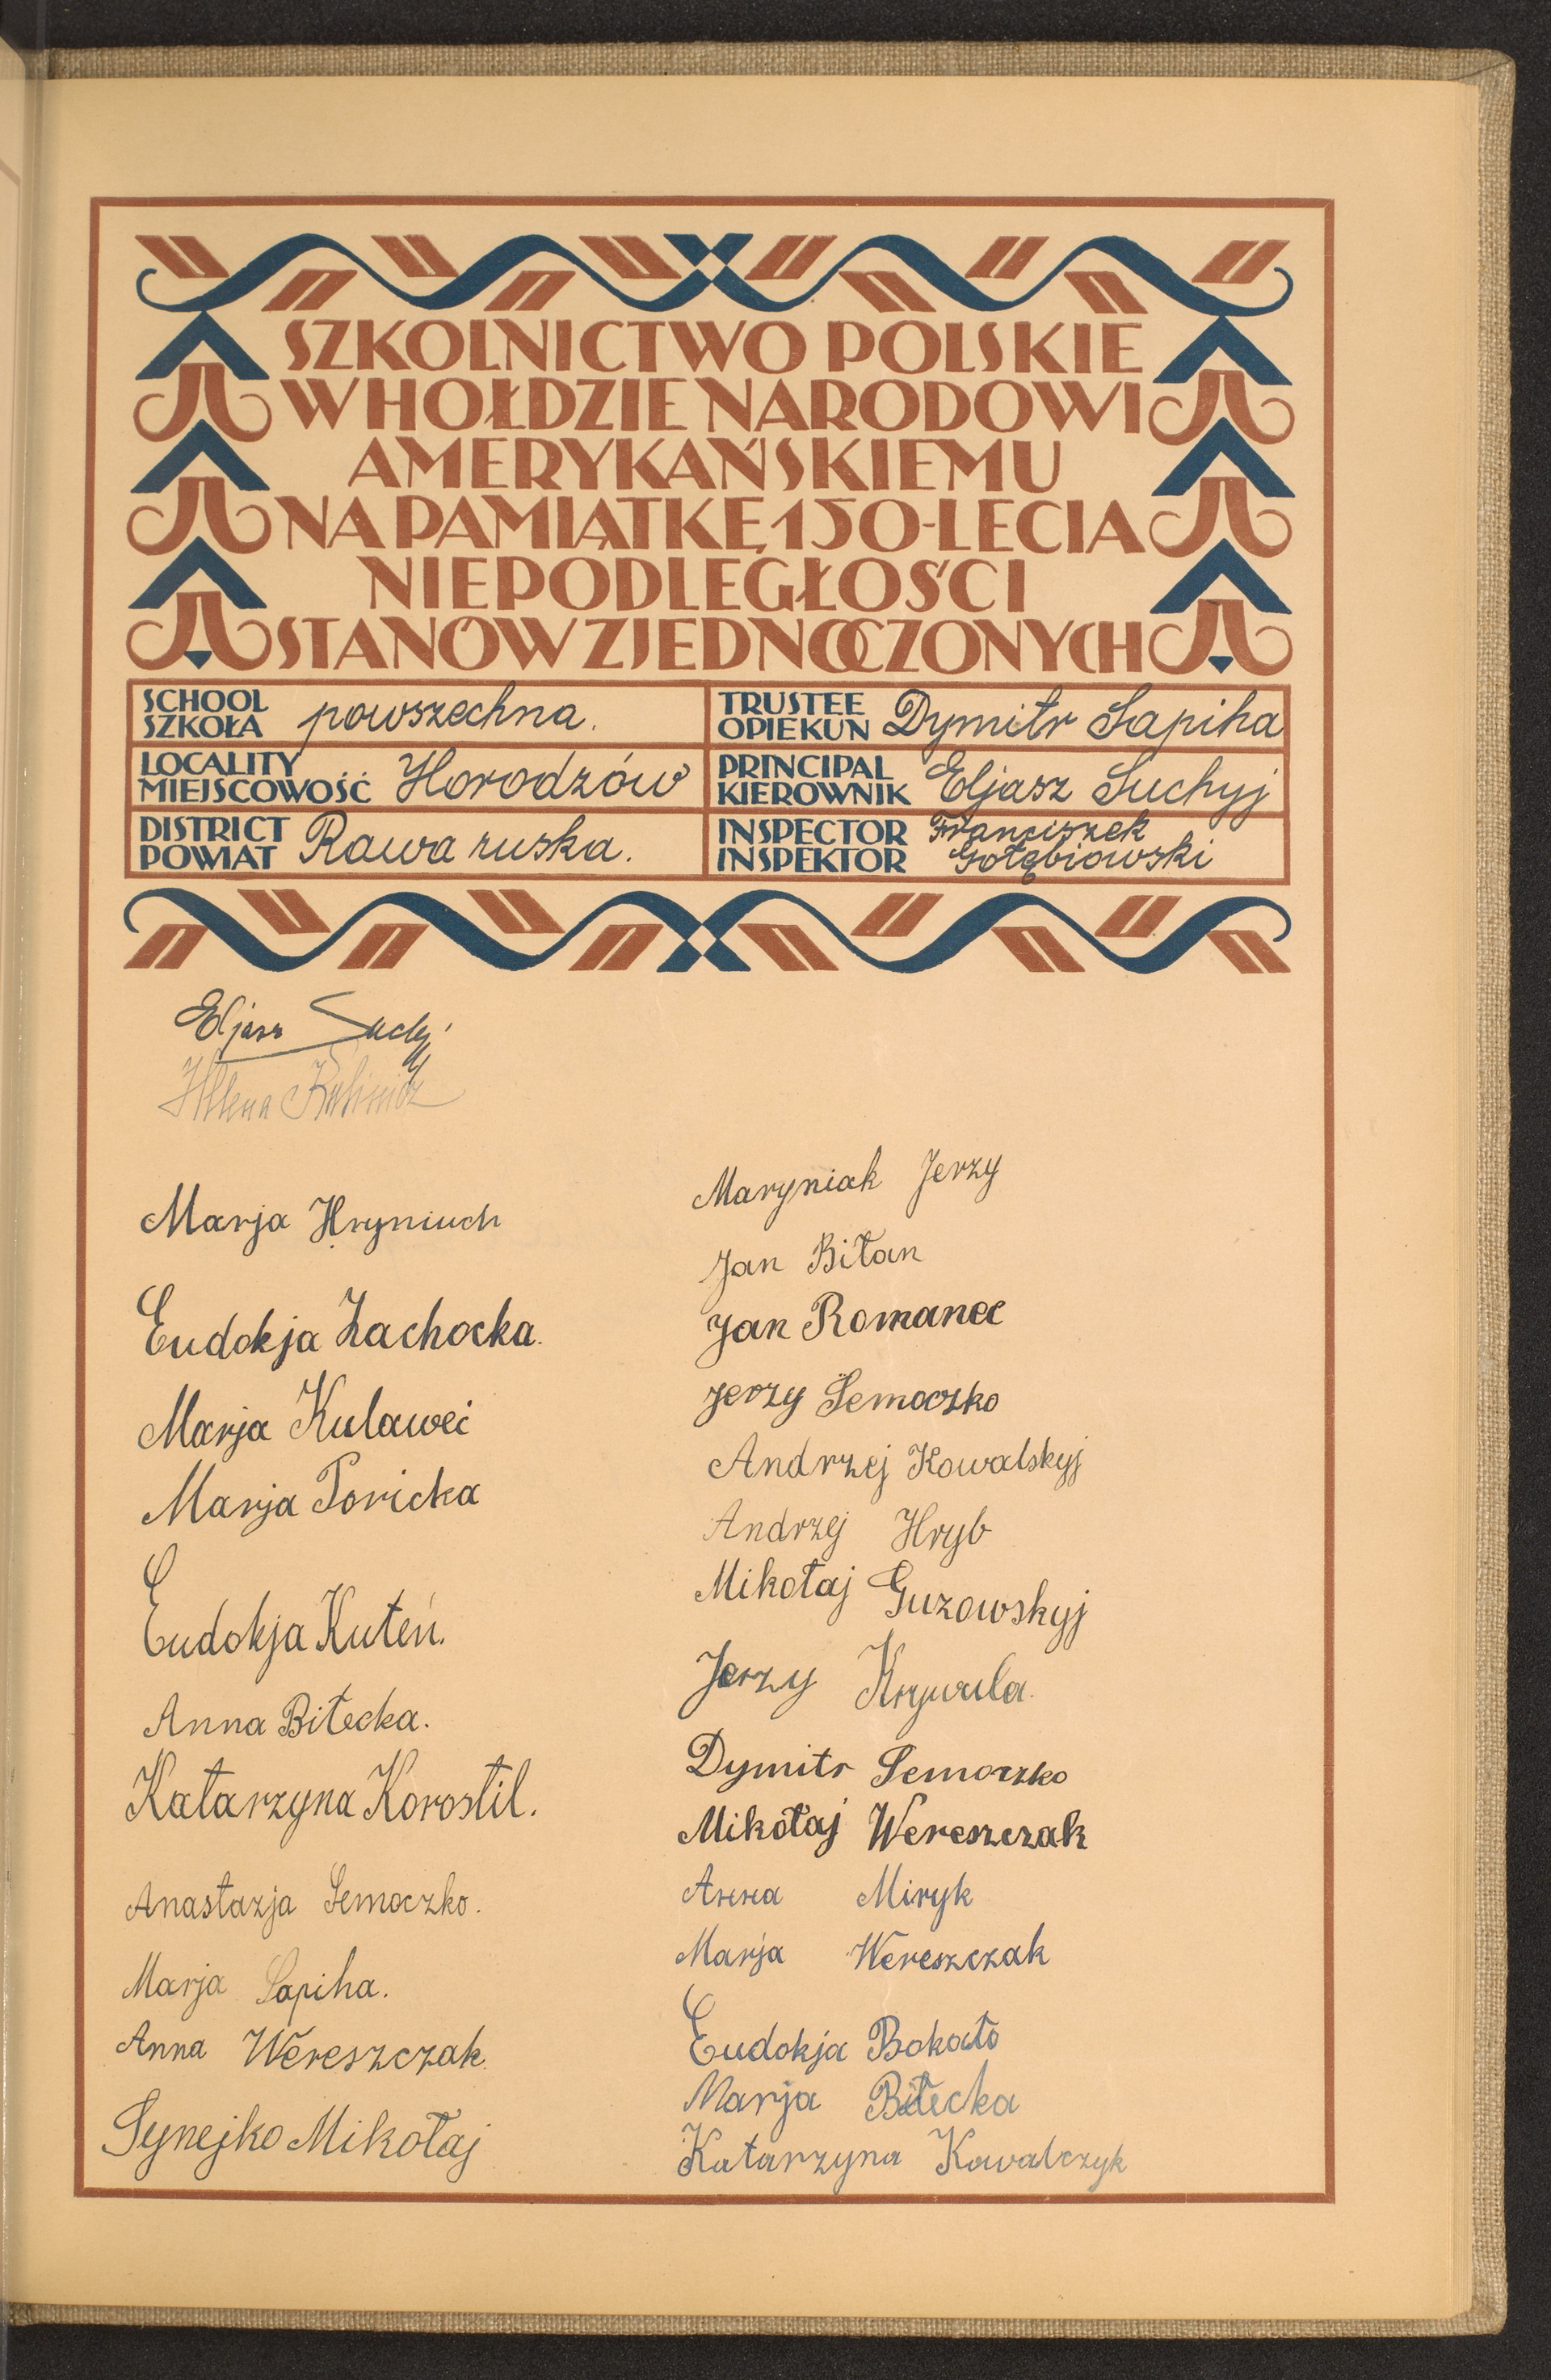 SZKOLNICTWO POLSKIE
W HOŁDZIE NARODOWI
AMERYKAŃSKIEMU
NA PAMIĄTKĘ 150-LECIA
NIEPODLEGŁOŚCI
STANÓW ZJEDNOCZONYCH
SCHOOL
SZKOŁA powszechna.
TRUSTEE
OPIEKUN Dymitr Sapiha
LOCALITY
MIEJSCOWOŚĆ Horodzów
PRINCIPAL
KIEROWNIK Eljasz Suchyj
DISTRICT
POWIAT Rawa ruska.
INSPECTOR Franciszek
INSPEKTOR Gołębiowski
Eljasz Suchyj
Helena
Marja Hryniuch
Eudokja Zachocka.
Marja Kulaweć
Marja Toricka
Eudokja Kuteń.
Anna Biłecka.
Katarzyna Korostil.
Anastazja Semoczko.
Marja Sapiha.
Anna Wereszczak
Synejko Mikołaj
Maryniak Jerzy
Jan Biłan
Jan Romanec
Jerzy Semoczko
Andrzej Kowalskyj
Andrzej Hryb
Mikołaj Guzowskyj
Jerzy Krywula.
Dymitr Semoczko
Mikołaj Wereszczak
Anna Miryk
Marja Wereszczak
Eudokja Bokało
Marja Biłecka
Katarzyna Kowalczyk